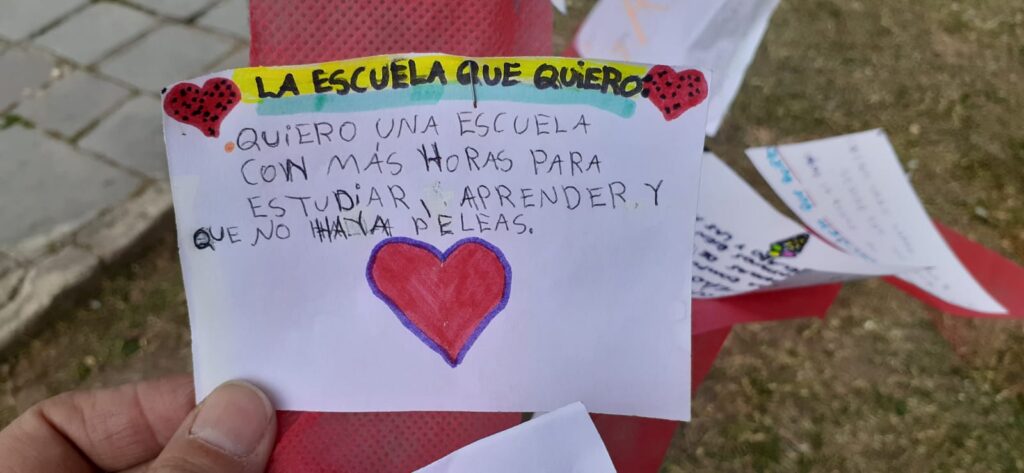 LA ESCUELA QUE QUIERO:
QUIERO UNA ESCUELA
CON MÁS HORAS PARA
ESTUDIAR, APRENDER, Y
QUE NO HAYA PELEAS.